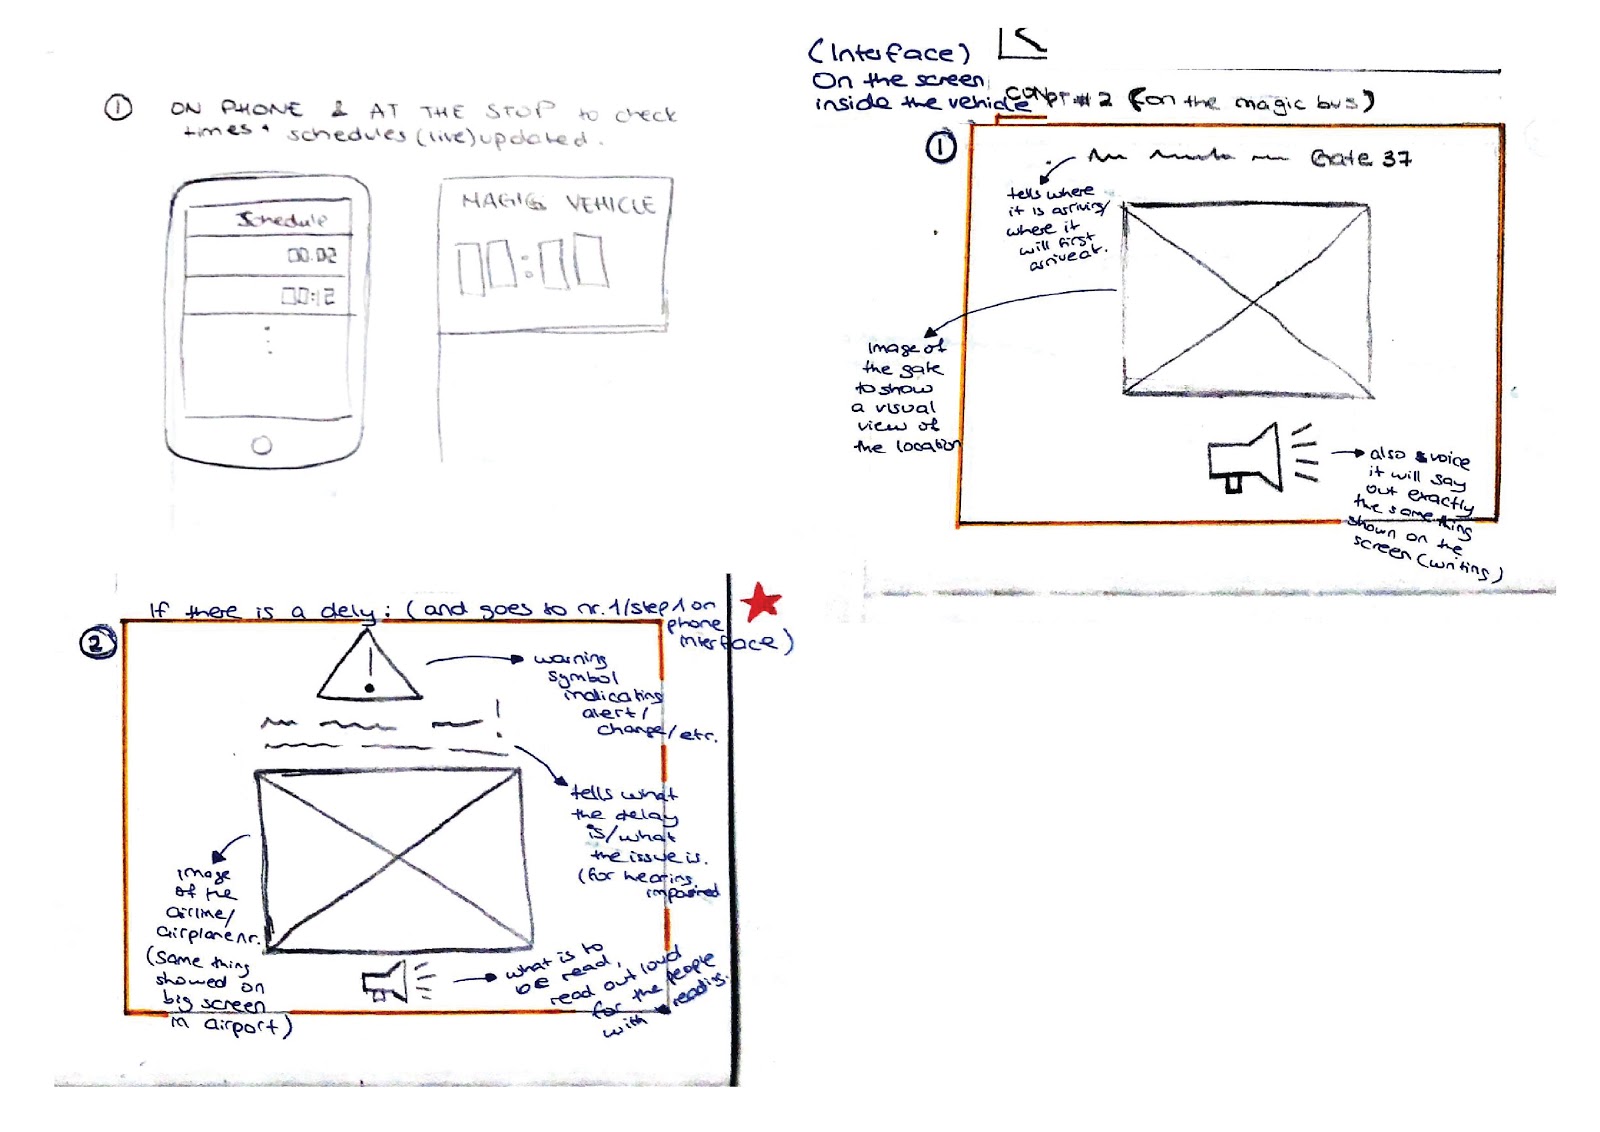 ① ON PHONE & AT THE STOP to check
times + schedules (live) updated.
Schedule
00.02
00:12
MAGIC VEHICLE
00:00
(Interface)
On the screen
inside the vehicle
#2 (on the magic bus)
①
Gate 37
tells where
it is arriving/
where it
will first
arrive at.
image of
the gate
to show
a visual
view of
the location
also voice
it will say
out exactly
the same thing
shown on the
screen (writing)
If there is a dely: (and goes to nr.1/step 1 on
phone
interface)
②
!
warning
symbol
indicating
alert/
change/etc.
!
tells what
the delay
is/what
the issue is.
(for hearing
impaired
image
of the
airline/
airplane nr.
(same thing
showed on
big screen
in airport)
what is to
be read,
read out loud
for the people
with reading.